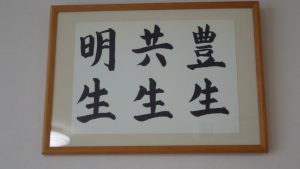 豊生
共生
明生